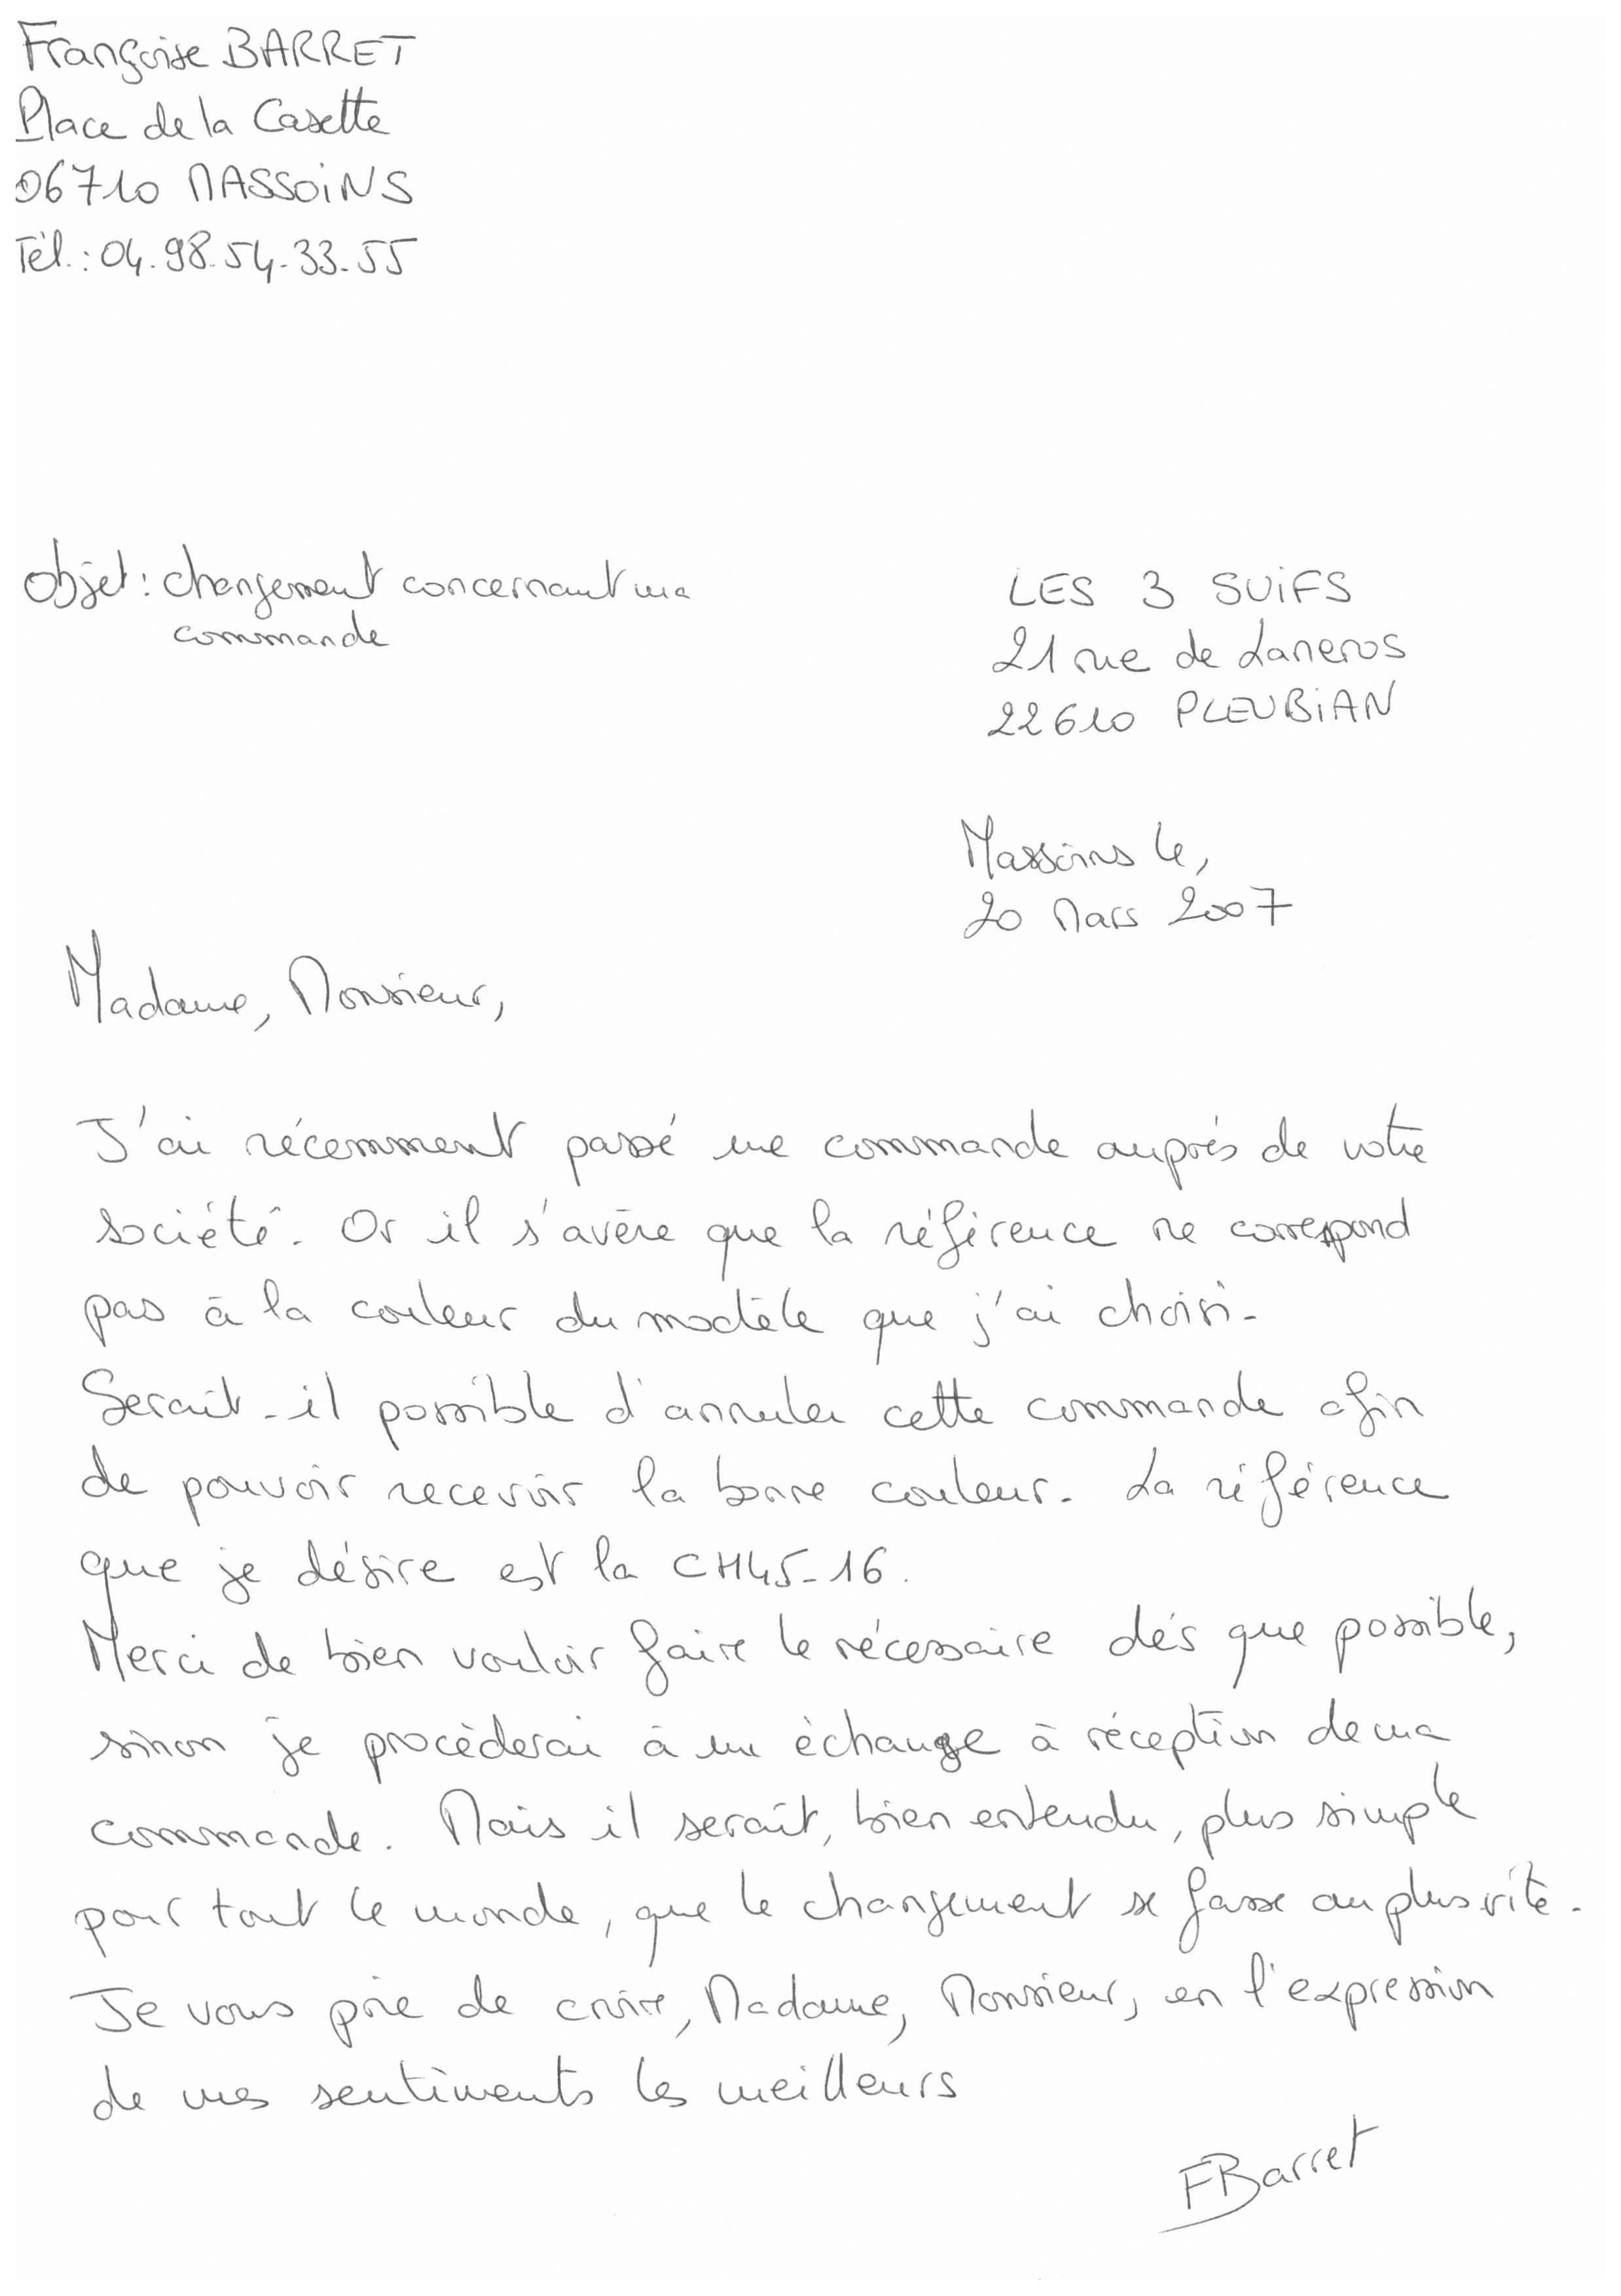 Françoise BARRET
Place de la Casette
06710 MASSOINS
Tél.: 04.98.54.33.55
Objet: changement concernant ma
commande
LES 3 SUIFS
21 rue de Laneros
22610 PLEUBIAN
Massoins le,
20 Mars 2007
Madame, Monsieur,
J'ai récemment passé une commande auprès de votre
société. Or il s'avère que la référence ne correspond
pas à la couleur du modèle que j'ai choisi.
Serait-il possible d'annuler cette commande afin
de pouvoir recevoir la bonne couleur. La référence
que je désire est la CH45-16.
Merci de bien vouloir faire le nécessaire dés que possible,
sinon je procèderai à un échange à réception de ma
commande. Mais il serait, bien entendu, plus simple
pour tout le monde, que le changement se fasse au plus vite.
Je vous prie de croire, Madame, Monsieur, en l'expression
de mes sentiments les meilleurs
FBarret